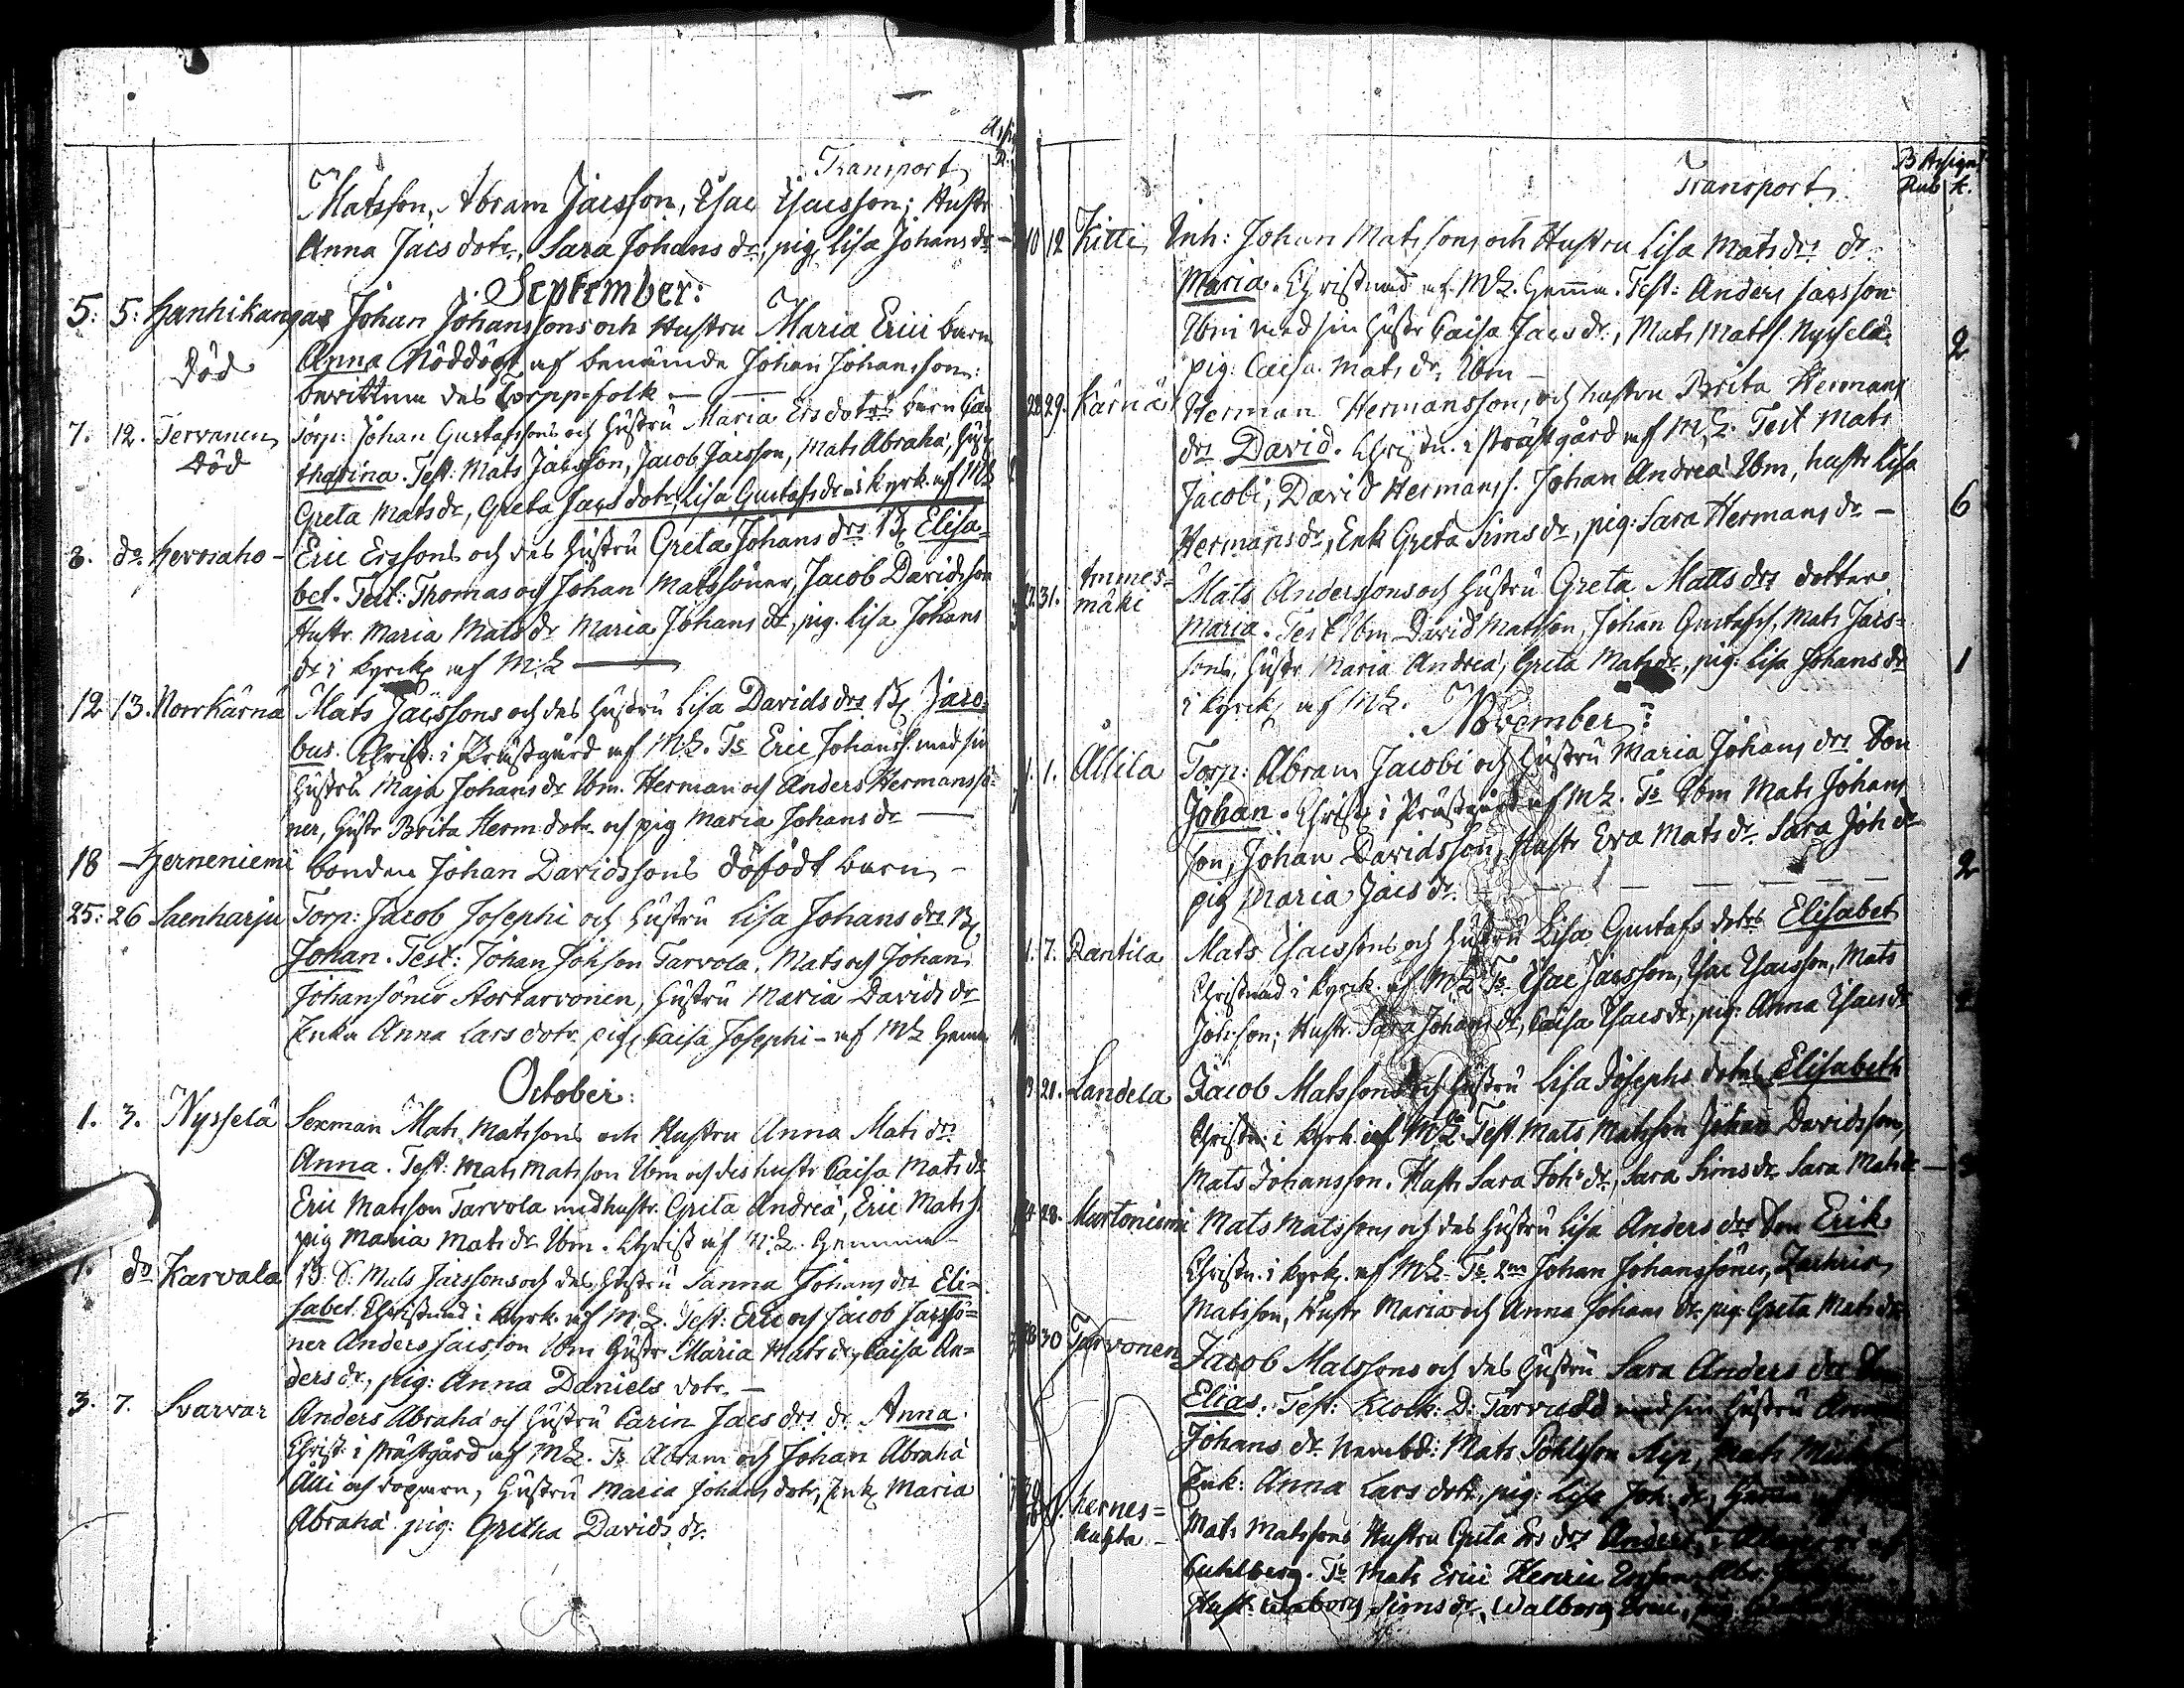 Transport
Matsson, Abram Jacsson, Isac Isacsson; Hustr
Anna Jacs dotr, Sara Johans dr, pig. Lisa Johans dr
September:
5. 5. Hanhikangas Johan Johanssons och Hustru Maria Erici barn
Död Anna Nöddöpt af benämde Johan Johansson:
berittna des Torpp-folk —
7. 12. Tervonen Torp: Johan Gustafssons och Hustru Maria Ersdotrs barn Ca-
Död tharina. Test: Mats Jacsson, Jacob Jacsson, Mats Abrahā, Hust
Greta Mats dr, Greta Jacs dotr, Lisa Gustafs dr i kyrk. af MZ
8. do Hervsaho - Eric Erssons och des Hustru Greta Johans drs B. Elisa-
bet. Test: Thomas och Johan Matssöner, Jacob Davidsson
Hustr. Maria Mats dr Maria Johans dr, pig. Lisa Johans
dr i kyrck af MZ —
12 13. Norrkärnä Mats Jacssons och des Hustru Lisa Davids drs B. Jaco-
bus. Christ: i Prästgård af MZ. Ts Eric Johanss. med sin
Hustru Maja Johans dr Ibm. Herman och Anders Hermanssö-
ner, Hustr Brita Herm: dotr och pig Maria Johans dr —
18 — Herneniemi bonden Johan Davidssons döfödt barn —
25. 26 Saenharju Torp: Jacob Josephi och Hustru Lisa Johans drs B.
Johan. Test: Johan Johson Tarvola, Mats och Johan
Johansöner Stortarvonen, Hustru Maria Davids dr
Enka Anna Lars dotr pig. Caisa Josephi - af MZ Hemma
October:
1. 3. Nysselä Sexman Mats Matssons och Hustru Anna Mats drs
Anna. Test: Mats Matsson Ibm och des hustr Caisa Mats dr
Eric Matsson Tarvola med hustr. Greta Andreā, Eric Matss.
pig Maria Mats dr Ibm. Christ af MZ. Hemma —
1. do Karvala B. S: Mats Jacssons och des Hustru Sanna Johans drs Eli-
sabet. Christnad i kyrk. af MZ. Test: Eric och Jacob Jacssö-
ner Anders Jacsson Ibm Hustr. Maria Mats dr, Caisa An-
ders dr, pig: Anna Daniels dotr. —
3. 7. Svarvar Anders Abrahā och Hustru Carin Jacs drs dr Anna
Christ: i Prästgård af MZ. Ts Abram och Johan Abrahā
Alli och Maria Johans dotr, Enk. Maria
Abrahā pig: Gretha Davids dr.
Transport B Assign
Rub k.
10 12 Kitti Inh: Johan Matssons och Hustru Lisa Mats drs dr
Maria. Christnad af MZ. Hemma. Test: Anders Jacsson
Ibm med sin Hustr Caisa Jacs dr, Mats Matss. Nysselä
pig: Caisa Mats dr Ibm — 2
28 29. Kärnä Herman Hermansson, och hustru Brita Hermans
drs David. Christn. i Prästgård af MZ. Test Mats
Jacobi, David Hermanss. Johan Andreā Ibm, hustr Lisa
Hermans dr, Enk Greta Sims dr, pig: Sara Hermans dr — 6
31. Ammes-
mäki Mats Anderssons och Hustru Greta Matts drs dotter
Maria. Test Ibm David Matsson, Johan Gustafss, Mats Jacs-
sons, Hustr Maria Andreā, Greta Mats dr, pig: Lisa Johans dr 1
i kyrck af MZ.
November:
1. 1. Allila Torp: Abram Jacobi och Hustru Maria Johans drs Son
Johan. Christ i Prästgård af MZ. Ts Ibm Mats Johans
son, Johan Davidsson, Hustr Eva Mats dr Sara Joh dr
pig Maria Jacs dr 2
1. 7. Rantila Mats Isacssons och Hustru Lisa Gustafs dotrs Elisabet
Christnad i kyrck. af MZ. Ts Isac Jacsson, Isac Isacsson, Mats
Johsson; Hustr. Sara Johans dr, Caisa Isacs dr, pig: Anna Isacs dr 2
21. Landela Jacob Matssons och Hustru Lisa Josephs dotrs Elisabeth
Christn: i kyrk. af MZ. Test Mats Matsson Johan Davidsson,
Mats Johansson. Hustr Sara Joh dr, Sara Sims dr Sara Mats dr —
28. Murtoniemi Mats Matssons och des Hustru Lisa Anders drs Son Erik
Christn. i kyrk. af MZ. Ts 2ne Johan Johanssöner, Zachris
Matsson, Hustr Maria och Anna Johans dr pig. Greta Mats dr
28 30 Tarvonen Jacob Matssons och des Hustru Sara Anders drs Son
Elias. Test: Klock: D: med sin Hustru Anna
Johans dr Nembd: Mats
Enk: Anna Lars dotr, pig: Lisa Joh: dr,
Hernes-
Mats Matssons Hustru Greta Ers drs Anders,
Ts Mats Erici Henric Ersson
Hust: Walborg Sims dr, Walborg